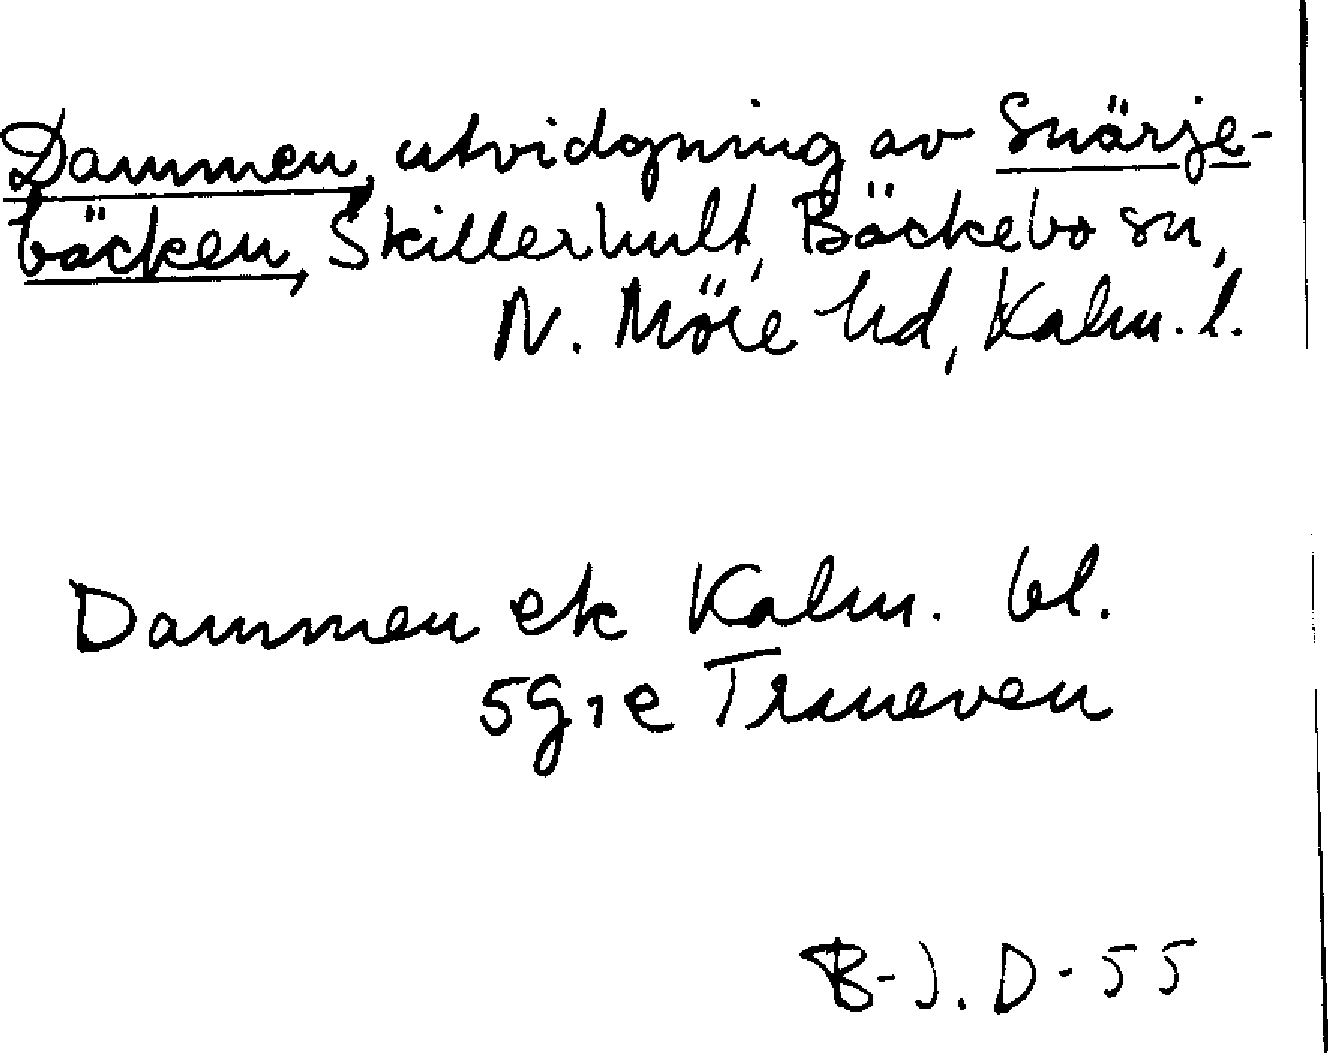 Dammen, utvidgning av Snärje-
bäcken, Skillerhult, Bäckebo sn,
N. Möre hd, Kalm. l.
Dammen ek Kalm. bl.
5g1e Traneven
B-J. D-55